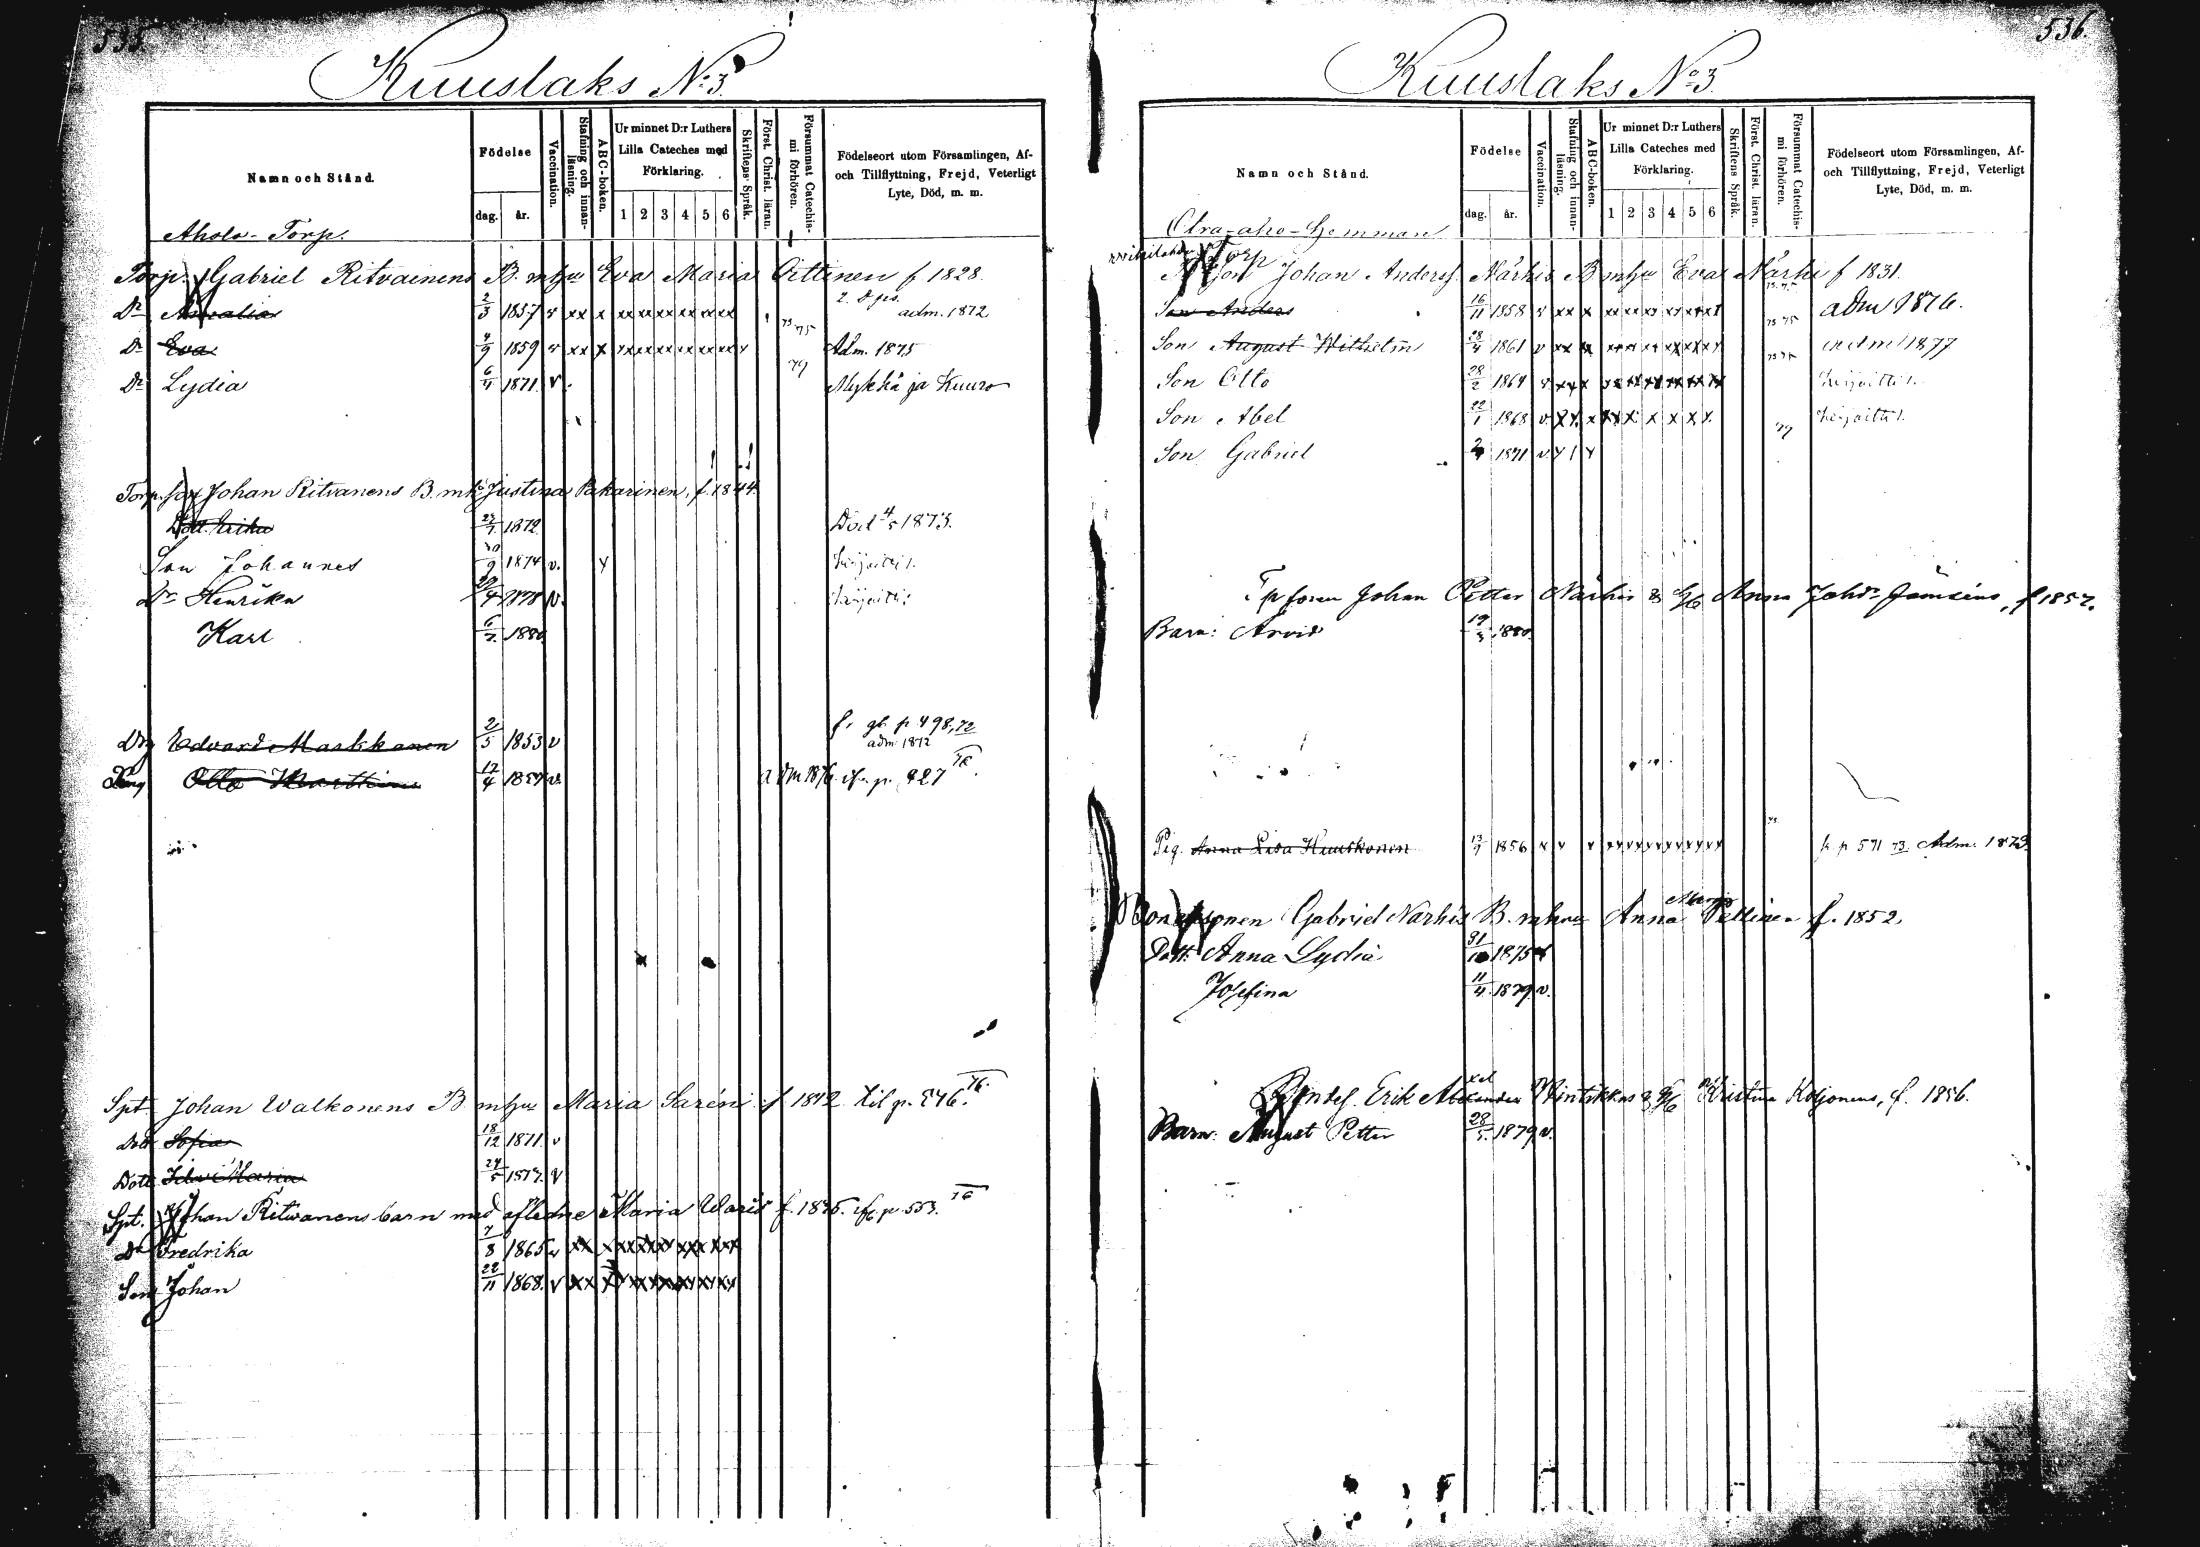 535.
Kuuslaks No 3.
Namn och Stånd.
Födelse
dag. år.
Vaccination.
Stafning och innanläsning.
ABC-boken.
Ur minnet D:r Luthers Lilla Cateches med Förklaring.
1 2 3 4 5 6
Skriftens Språk.
Först. Christ. läran.
Försummat Catechismi förhören.
Födelseort utom Församlingen, Af- och Tillflyttning, Frejd, Veterligt Lyte, Död, m. m.
Aholo-Torp.
Torp. Gabriel Ritvainens B. m hu Eva Maria Oittinen f 1828.
Dr Amalia 2/3 1857 v xx x xx xx xx xx xx xx adm. 1872
Dr Eva 4/9 1859 v xx x xx xx xx xx xx xx x 73 75 Adm. 1875
Dr Lydia 6/4 1871. v 79 Mykkä ja Kuuro
Torp. son Johan Ritvanens B. m h Justina Pakarinen, f. 1844.
Dott. Erika 23/7 1872 Död 4/5 1873.
Son Johannes 30/9 1874 v. x
Dr Henrika 29/4 1878 v.
Karl 6/7 1880
Drg Edvard Maskkanen 2/5 1853 v fr gb p 498, 72
adm 1872
Dreng Otto Marttinen 12/4 1857 v. adm 1876. p. 827 76.
Spt Johan Walkonens B m hu Maria Sarén f 1842 til p. 546. 76.
Dr Sofia 18/12 1871. v
Dott Maria 24/5 1877. v
Spt. Johan Ritwanens barn med aflidne Maria f. 1835. p. 553. 76
Dr Fredrika 7/8 1865 v xx x xx xx xx xx xx xx
Son Johan 22/11 1868. v xx x xx xx xx xx xx xx
536.
Kuuslaks No 3.
Namn och Stånd.
Födelse
dag. år.
Vaccination.
Stafning och innanläsning.
ABC-boken.
Ur minnet D:r Luthers Lilla Cateches med Förklaring.
1 2 3 4 5 6
Skriftens Språk.
Först. Christ. läran.
Försummat Catechismi förhören.
Födelseort utom Församlingen, Af- och Tillflyttning, Frejd, Veterligt Lyte, Död, m. m.
Olra-aho-Hemman
Torp
Johan Andersf. Närhis B m hu Eva Närhi f 1831.
Son Anders 16/11 1858 v xx x xx xx xx xx xx x 73 75 adm 1876.
Son August Wilhelm 28/4 1861 v xx x xx xx xx xx xx xx 73 75 adm 1877
Son Otto 28/2 1864 v xx x xx xx xx xx xx xx
Son Abel 22/1 1868 v. xx. x xx x x x x x. 79
Son Gabriel 1871 v. x
Tp sonen Johan Petter Närhis & Hu Anna f 1857.
Barn: Arvid 19/3 1880.
Pig. Anna Lisa Kuuskonen 13/7 1856 v v v fr p 571 73 Adm. 1873
Bondesonen Gabriel Närhis B. m hru Anna Maria Pellinen f. 1852.
Dott. Anna Lydia 31/10 1875 v
Josefina 11/4. 1879. v.
Bondes. Erik Axel Wintikkas & Hu Kristina Koljonens, f. 1856.
Barn: August Petter 28/5. 1879 v.